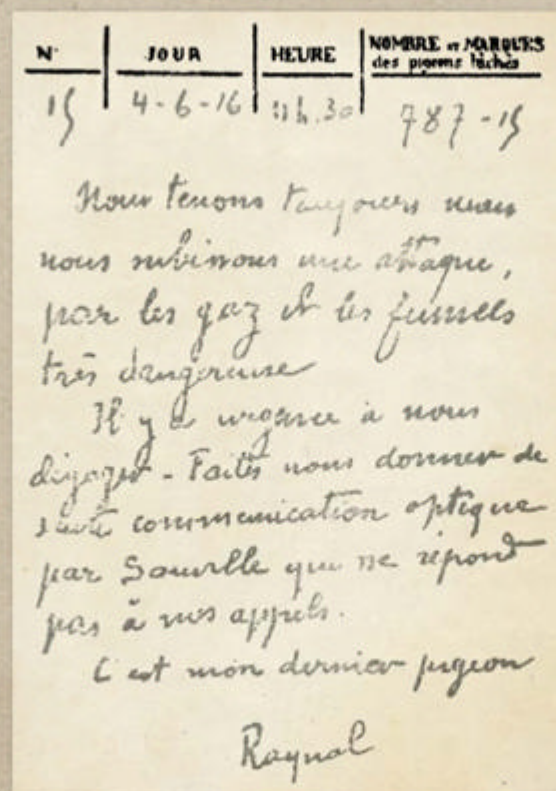 N° JOUR HEURE NOMBRE et MARQUES
des pigeons lâchés
15 4-6-16 11h.30 787-15
Nous tenons toujours mais
nous subissons une attaque,
par les gaz et les fumées
très dangereuse
Il y a urgence à nous
dégager - Faites nous donner de
suite communication optique
par Souville qui ne répond
pas à nos appels.
C'est mon dernier pigeon
Raynal